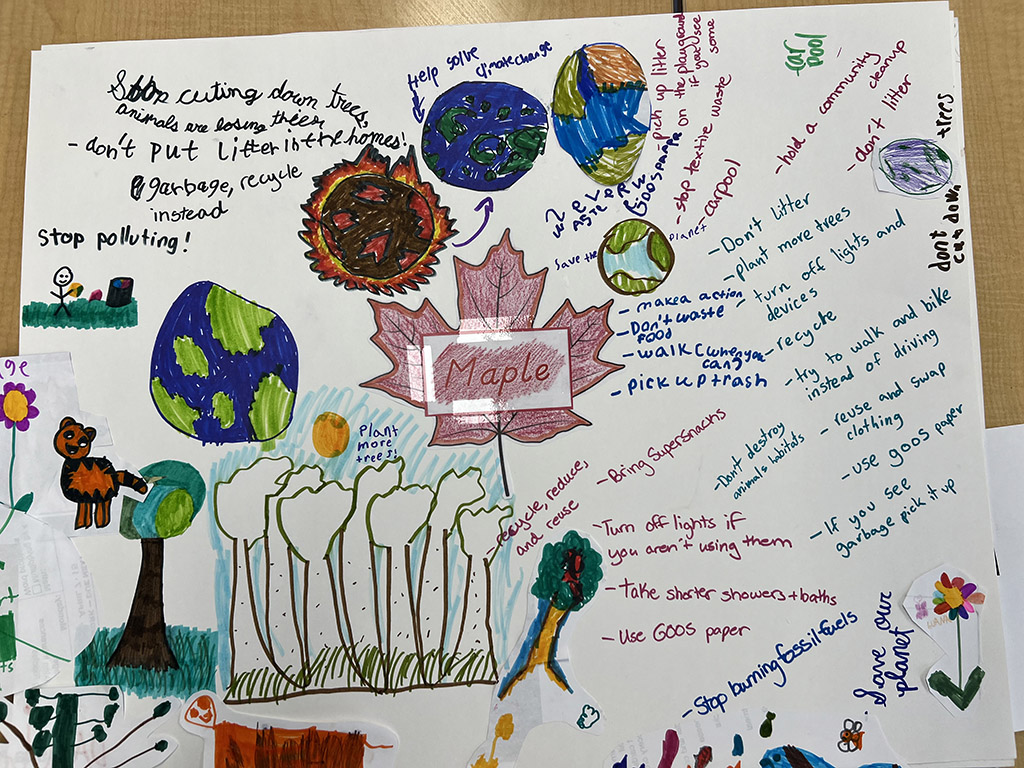 Stop cuting down trees,
animals are losing trees,
- don't put litter in the homes!
garbage, recycle
instead
Stop polluting!
Help solve
climate change
pick up litter
on the playground
if you see
some
- stop textile waste
- carpool
car
pool
- hold a community
cleanup
- don't litter
trees
dont
cut down
Save the
planet
- make a action
- Don't waste
food
- walk (when you
can)
- pick up trash
- Don't Litter
- plant more trees
- turn off lights and
devices
- recycle
- try to walk and bike
instead of driving
- reuse and swap
clothing
- use goos paper
- If you see
garbage pick it up
Maple
Plant
more
trees!
recycle, reduce,
and reuse
- Bring Supersnacks
- Don't destroy
animals habitats
- Turn off lights if
you aren't using them
- Take shorter showers + baths
- Use GOOS paper
- Stop burning fossil-fuels
Save our
planet